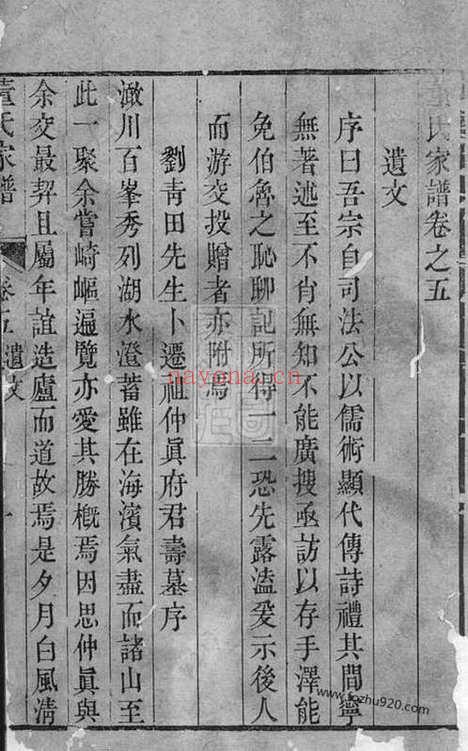 董氏家譜卷之五
遺文
序曰吾宗自司法公以儒術顯代傳詩禮其間寧
無著述至不肖無知不能廣搜亟訪以存手澤能
免伯魯之恥聊記所得一二恐先露溘爰示後人
而游交投贈者亦附焉
劉青田先生卜遷祖仲眞府君壽墓序
澉川百峯秀列湖水澄蓄雖在海濱氣盡而諸山至
此一聚余嘗崎嶇遍覽亦愛其勝槪焉因思仲眞與
余交最契且屬年誼造廬而道故焉是夕月白風淸
董氏家譜 卷五 遺文 一
nayona.cn
www.fozhu920.com